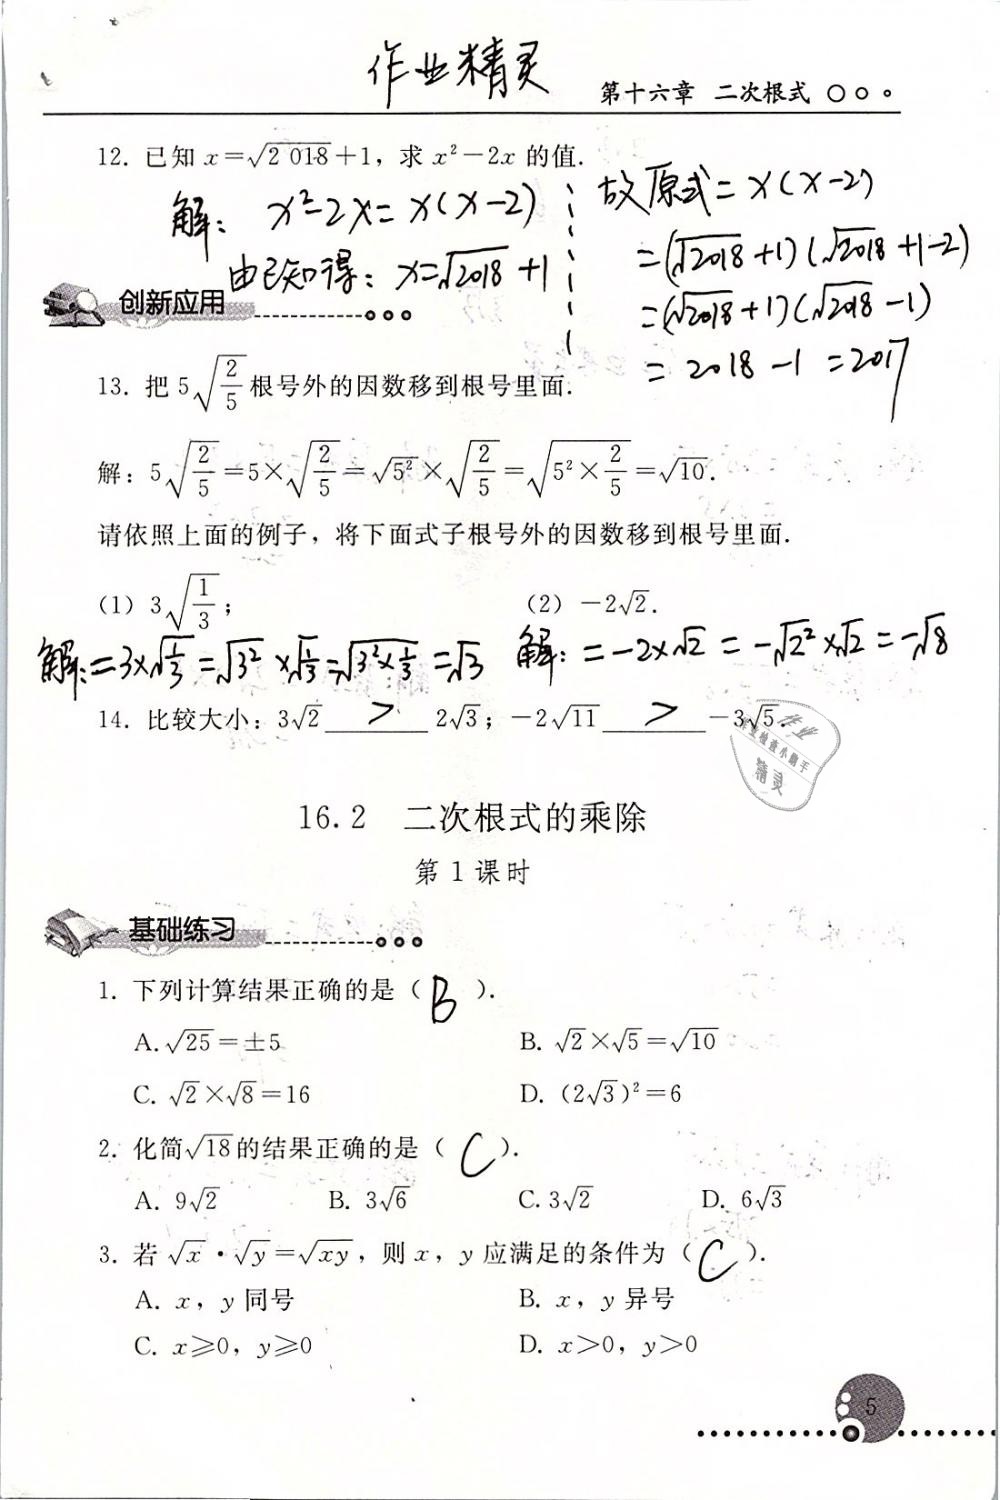 作业精灵
第十六章 二次根式
12. 已知 x=√2 018+1，求 x²-2x 的值.
解: x²-2x=x(x-2)
由已知得: x=√2018+1
故原式=x(x-2)
=(√2018+1)(√2018+1-2)
=(√2018+1)(√2018-1)
=2018-1=2017
创新应用
13. 把 5√(2/5) 根号外的因数移到根号里面.
解: 5√(2/5)=5×√(2/5)=√5²×√(2/5)=√(5²×2/5)=√10.
请依照上面的例子，将下面式子根号外的因数移到根号里面.
(1) 3√(1/3); (2) -2√2.
解:=3×√(1/3)=√3²×√(1/3)=√(3²×1/3)=√3 解:=-2×√2=-√2²×√2=-√8
14. 比较大小: 3√2 > 2√3; -2√11 > -3√5.
作业
作业检查小助手
精灵
16.2 二次根式的乘除
第 1 课时
基础练习
1. 下列计算结果正确的是( B ).
A. √25=±5 B. √2×√5=√10
C. √2×√8=16 D. (2√3)²=6
2. 化简√18的结果正确的是( C ).
A. 9√2 B. 3√6 C. 3√2 D. 6√3
3. 若 √x·√y=√xy，则 x，y 应满足的条件为( C ).
A. x，y 同号 B. x，y 异号
C. x≥0，y≥0 D. x>0，y>0
5